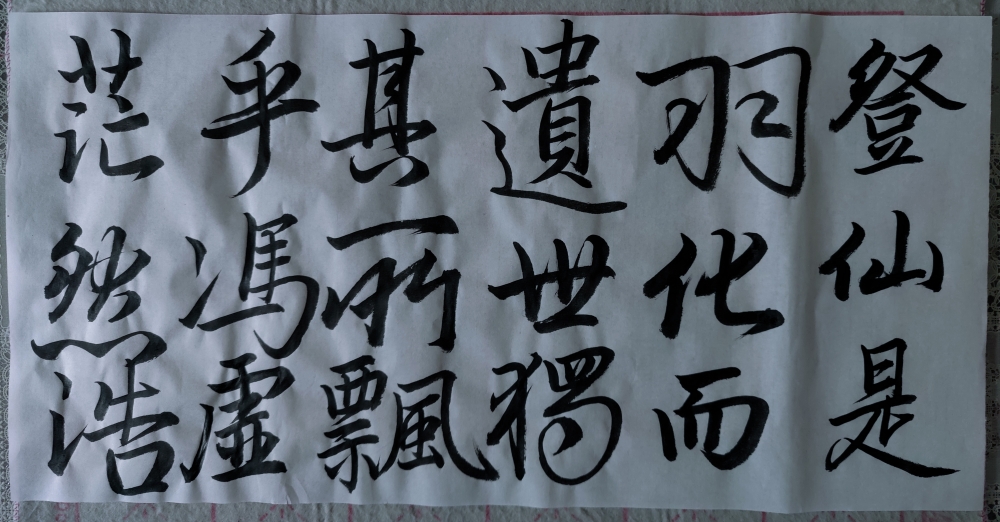 登仙是
羽化而
遺世獨
其所飄
乎馮虛
茫然浩